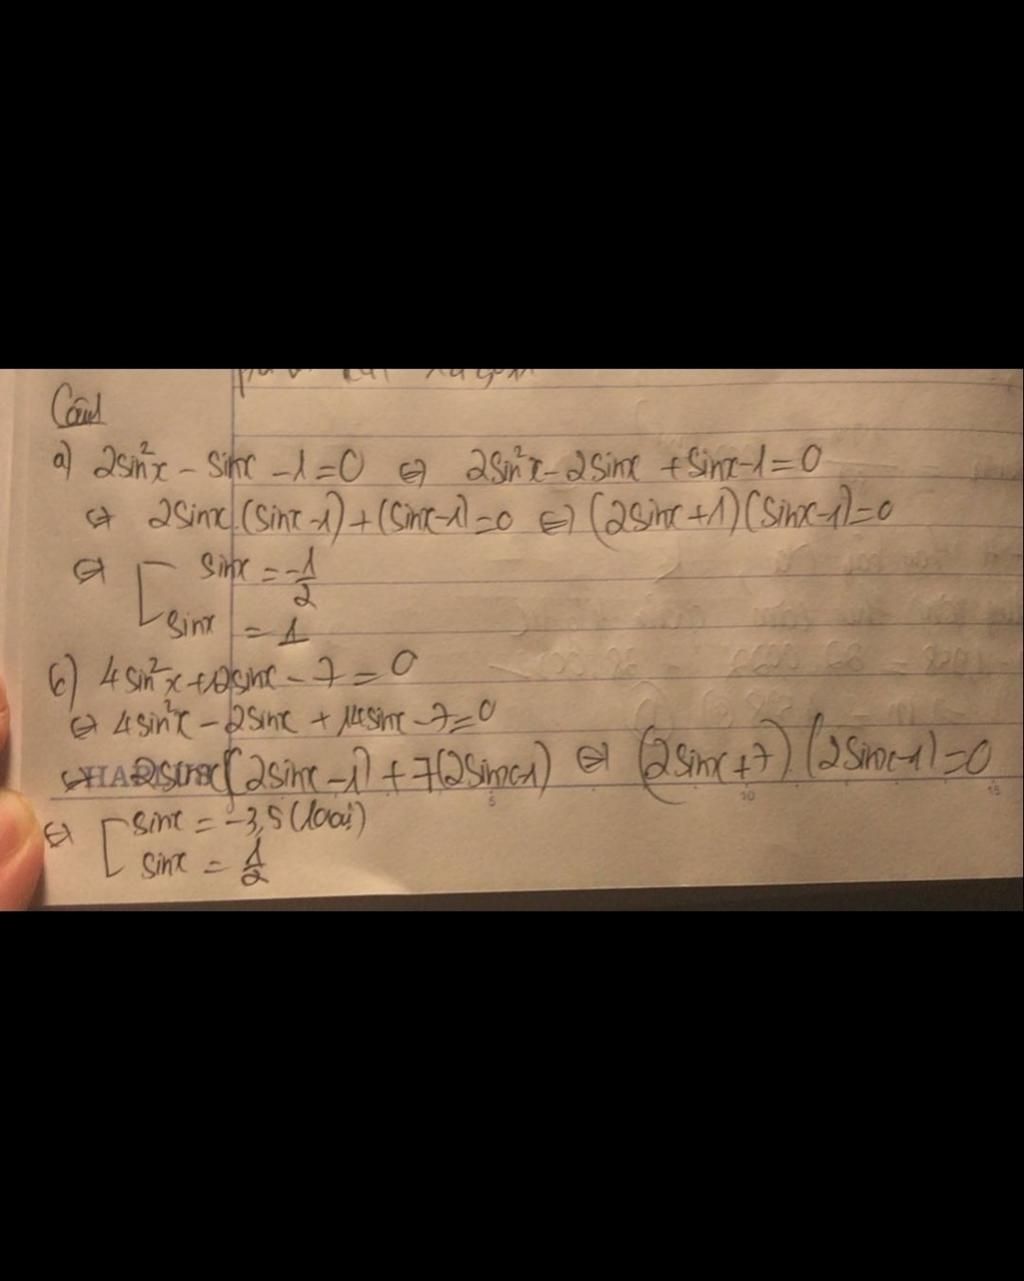 Câu1
a) 2sin²x - sinx - 1 = 0 ⇔ 2sin²x - 2sinx + sinx - 1 = 0
⇔ 2sinx.(sinx - 1) + (sinx - 1) = 0 ⇔ (2sinx + 1)(sinx - 1) = 0
⇔ [ sinx = -1/2
sinx = 1
b) 4sin²x + 12sinx - 7 = 0
⇔ 4sin²x - 2sinx + 14sinx - 7 = 0
⇔ 2sinx(2sinx - 1) + 7(2sinx - 1) ⇔ (2sinx + 7).(2sinx - 1) = 0
5 10 15
⇔ [ sinx = -3,5 (loại)
sinx = 1/2